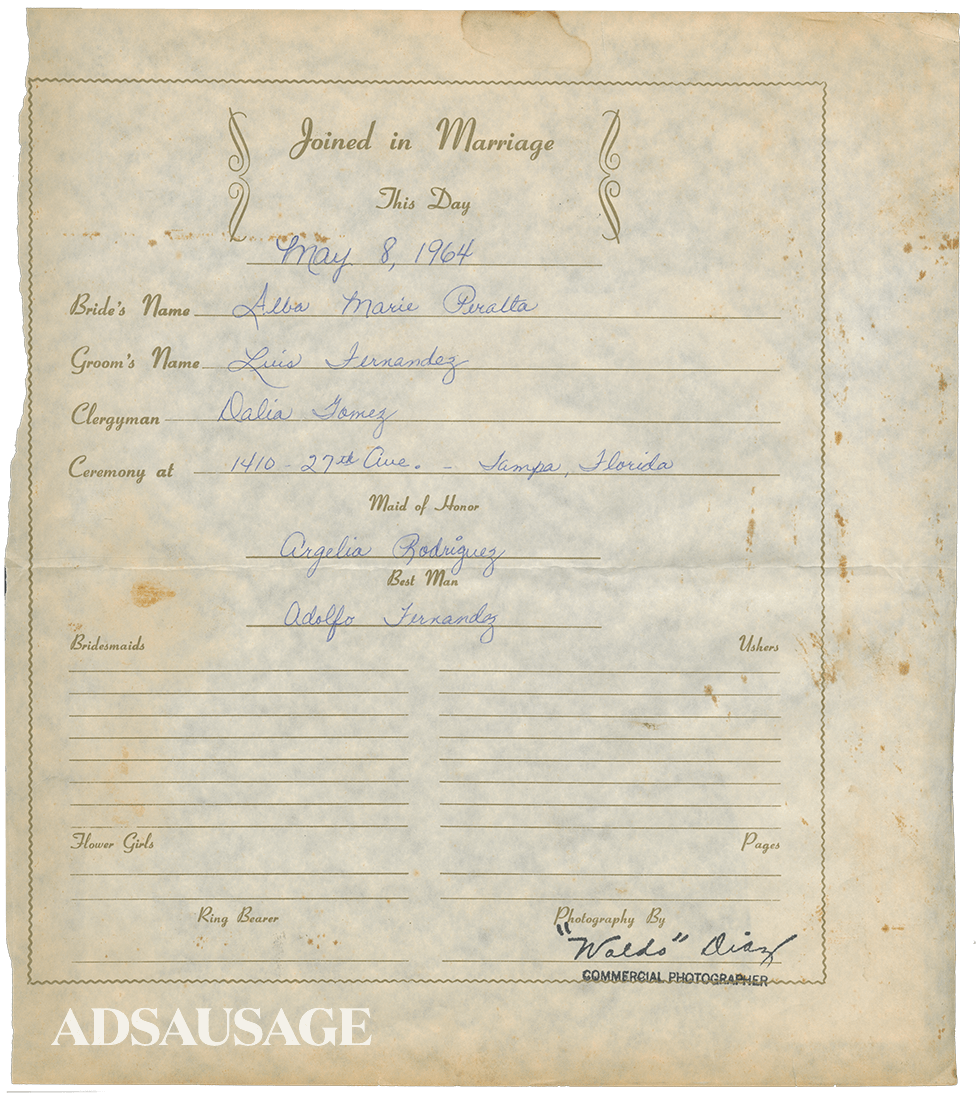 Joined in Marriage
This Day
May 8, 1964
Bride's Name Alba Marie Peralta
Groom's Name Luis Fernandez
Clergyman Dalia Gomez
Ceremony at 1410 - 27th Ave. - Tampa, Florida
Maid of Honor
Argelia Rodríguez
Best Man
Adolfo Fernandez
Bridesmaids Ushers
Flower Girls Pages
Ring Bearer Photography By
"Waldo" Diaz
COMMERCIAL PHOTOGRAPHER
ADSAUSAGE